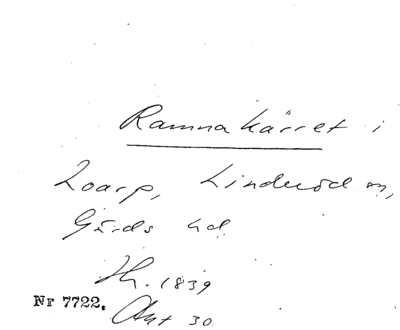 Ramnakärret i
Loarp, Linderöd sn,
Gärds hd
Sk. 1839
Nr 7722. Akt 30